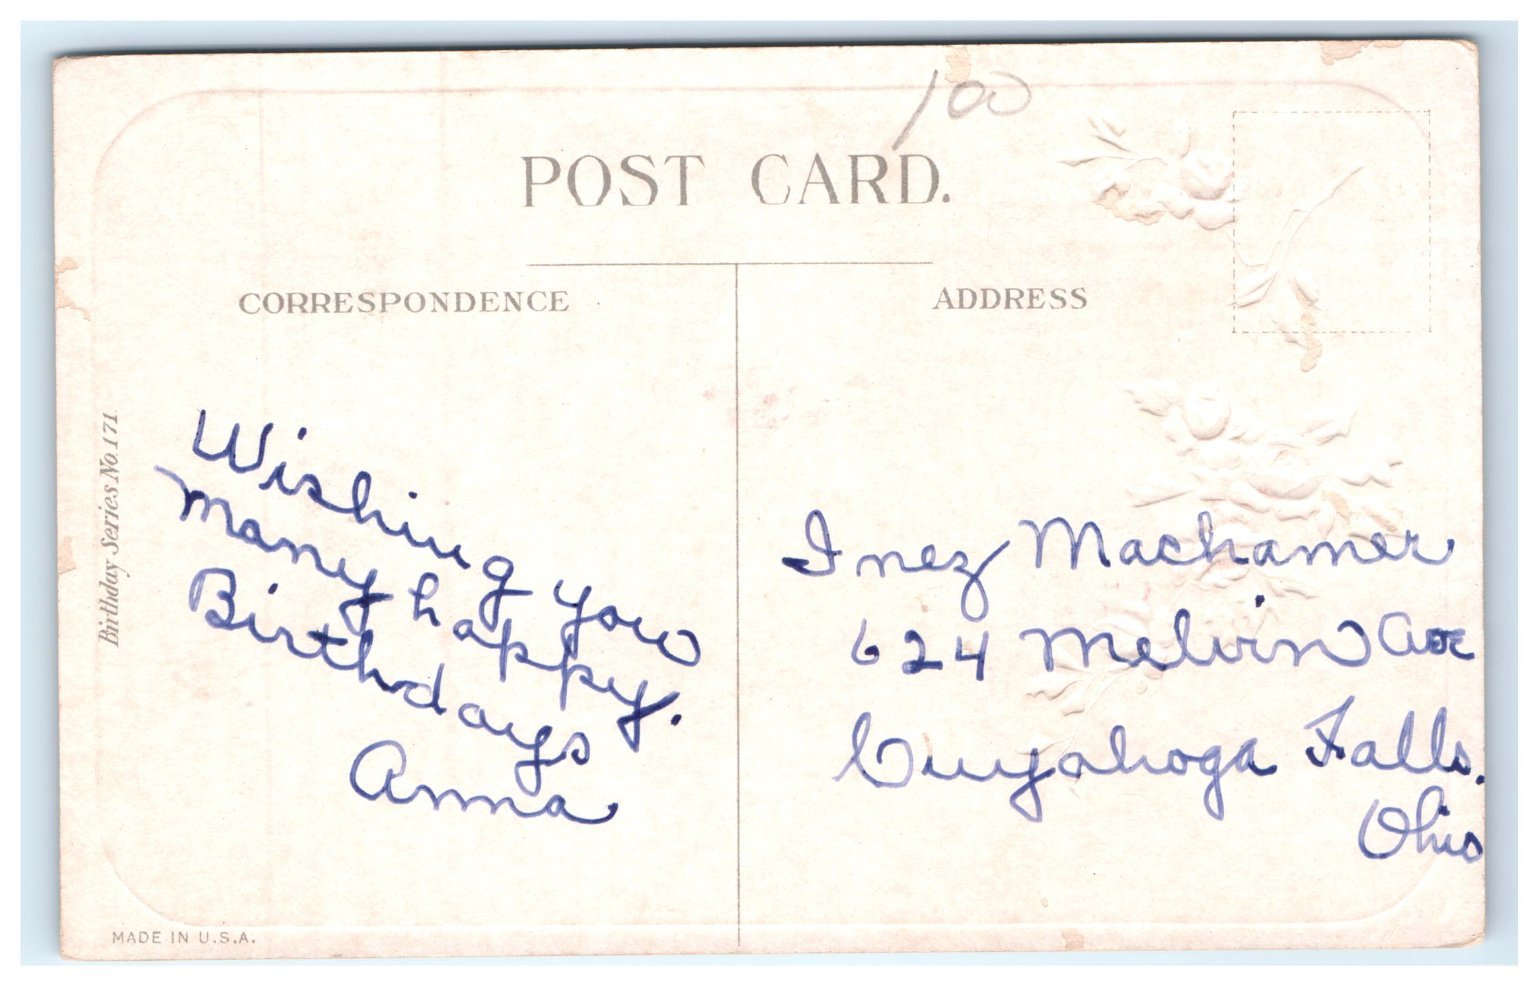 100
POST CARD.
CORRESPONDENCE
ADDRESS
Birthday Series No. 171
Wishing you
many happy.
Birthdays
Anna
Inez Machamer
624 Melvin Ave
Cuyahoga Falls.
Ohio
MADE IN U.S.A.